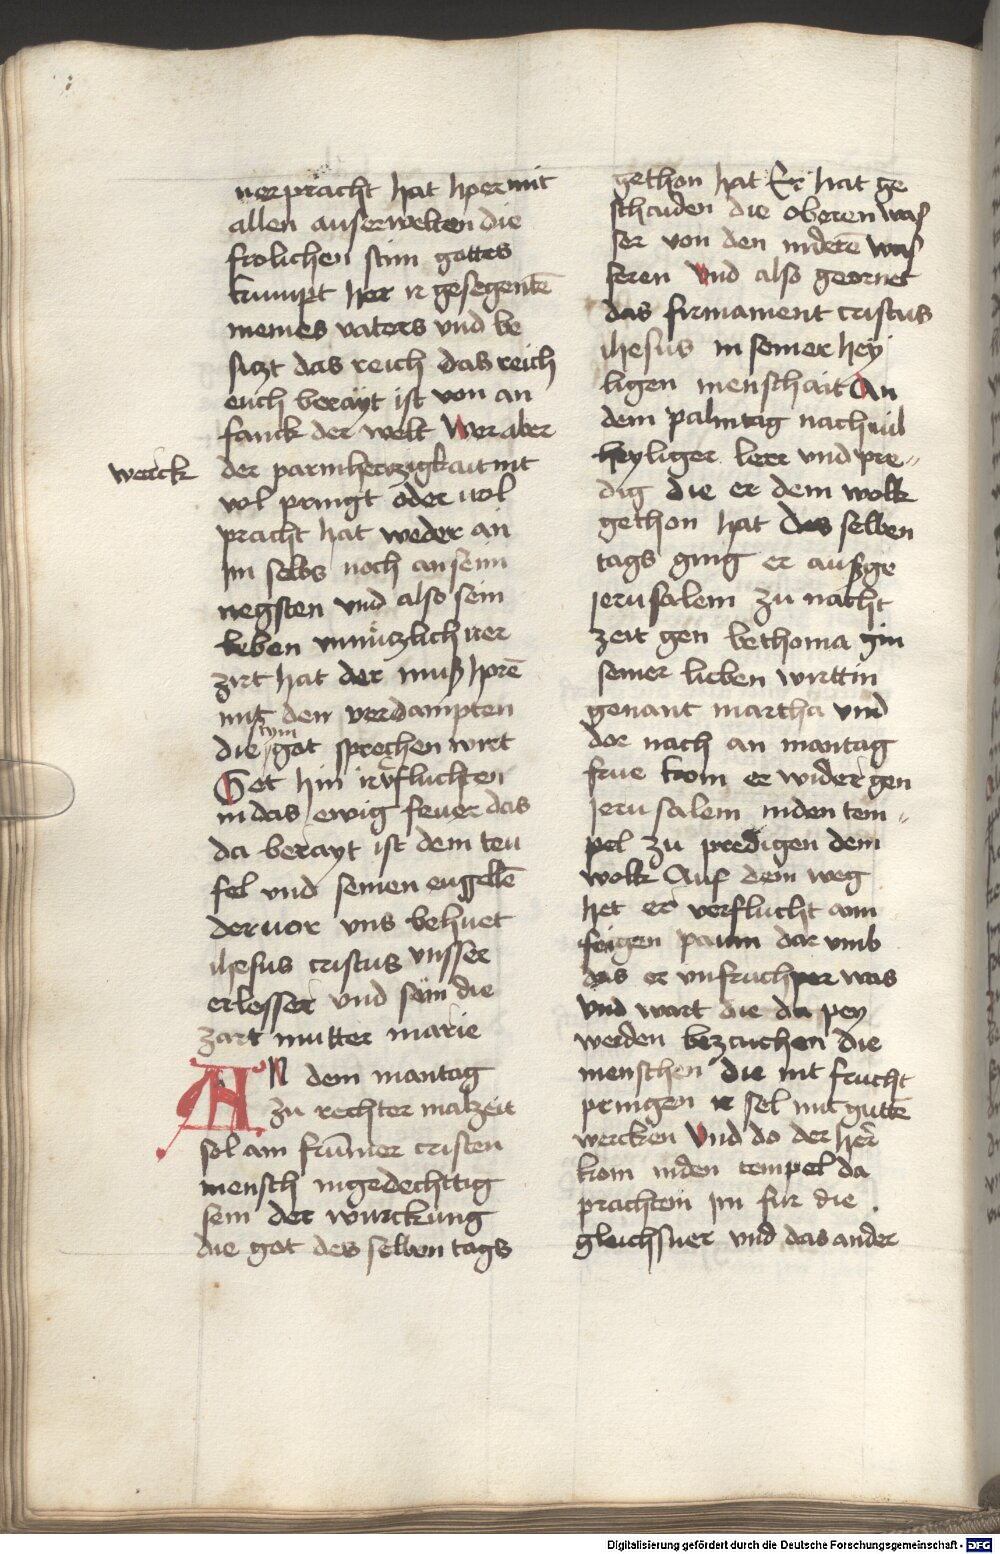 verpracht hat hoer mit
allen auserwelten die
frolichen stim gottes
kumpt her ir gesegentē
meines vaters vnd be
siczt das reich das reich
euch berayt ist von an
fanck der welt Wer aber
werck
der parmherczigkait nit
vol pringt oder vol
pracht hat weder an
im selbs noch an seim
negsten vnd also sein
leben vnnüczlich ver
zirt hat der muß horē
mit den verdampten
die stym got sprechen wirt
Get hin ir v̄fluchten
in das ewig feuer das
da berayt ist dem teu
fel vnd seinen engelē
der vor vns behuet
ihesus cristus vnsser
erlosser vnd sein die
zart mutter marie
AN dem mantag
zu rechter malzeit
sol ain frūmer cristen
mensch ingedechttig
sein der wurckung
die got des selben tags
gethon hat Er hat ge
schaiden die oberen was
ser von den niderē was
seren Vnd also geornet
das firmament cristus
ihesus in seiner hey
ligen menschait An
dem palmtag nach vil
heyliger leer vnd pre„
dig die er dem wolk
gethon hat des selben
tags ging er auß ge
jerusalem zu nacht
zeit gen bethonia zu
seiner lieben wirttin
genant martha vnd
dor nach an mantag
frue kom er wider gen
jerusalem in den tem„
pel zu predigen dem
wolk Auf dem weg
het er verflucht ain
feigen paum dar vmb
das er vnfruchper was
vnd wart die da pey
werden bezaichen die
menschen die nit frucht
pringen ir sel mit guttē
wercken Vnd do der her
kom in den tempel da
prachten im fur die
gleichsner vnd das ander